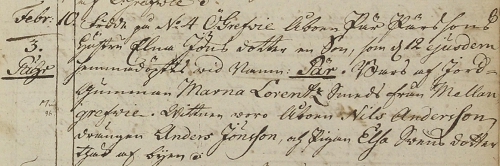 Febr. 10 Födde på No. 4 Ö Grefvie Åboen Pär Pärssons
3. hustru Elna Jöns dotter en Son, som d. 12 ejusdem
hemmadöptes vid Namn: Pär. Bars af Jord-
Gumman Marna Lorentz Smeds från Mellan
grefvie. Wittnen voro Åboen Nils Andersson,
drängen Anders Jönsson, och Pigan Elsa Svens dotter
af byen.